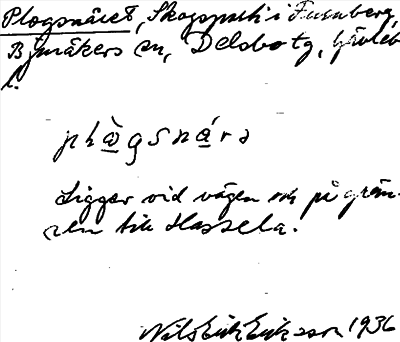 Plogsnåret, Skogspark i Furuberg,
Bjuråkers sn, Delsbo tg, Gävleb
l.
plògsnárə
Ligger vid vägen och på grän-
sen till Hassela.
Nils Erik Eriksson 1936